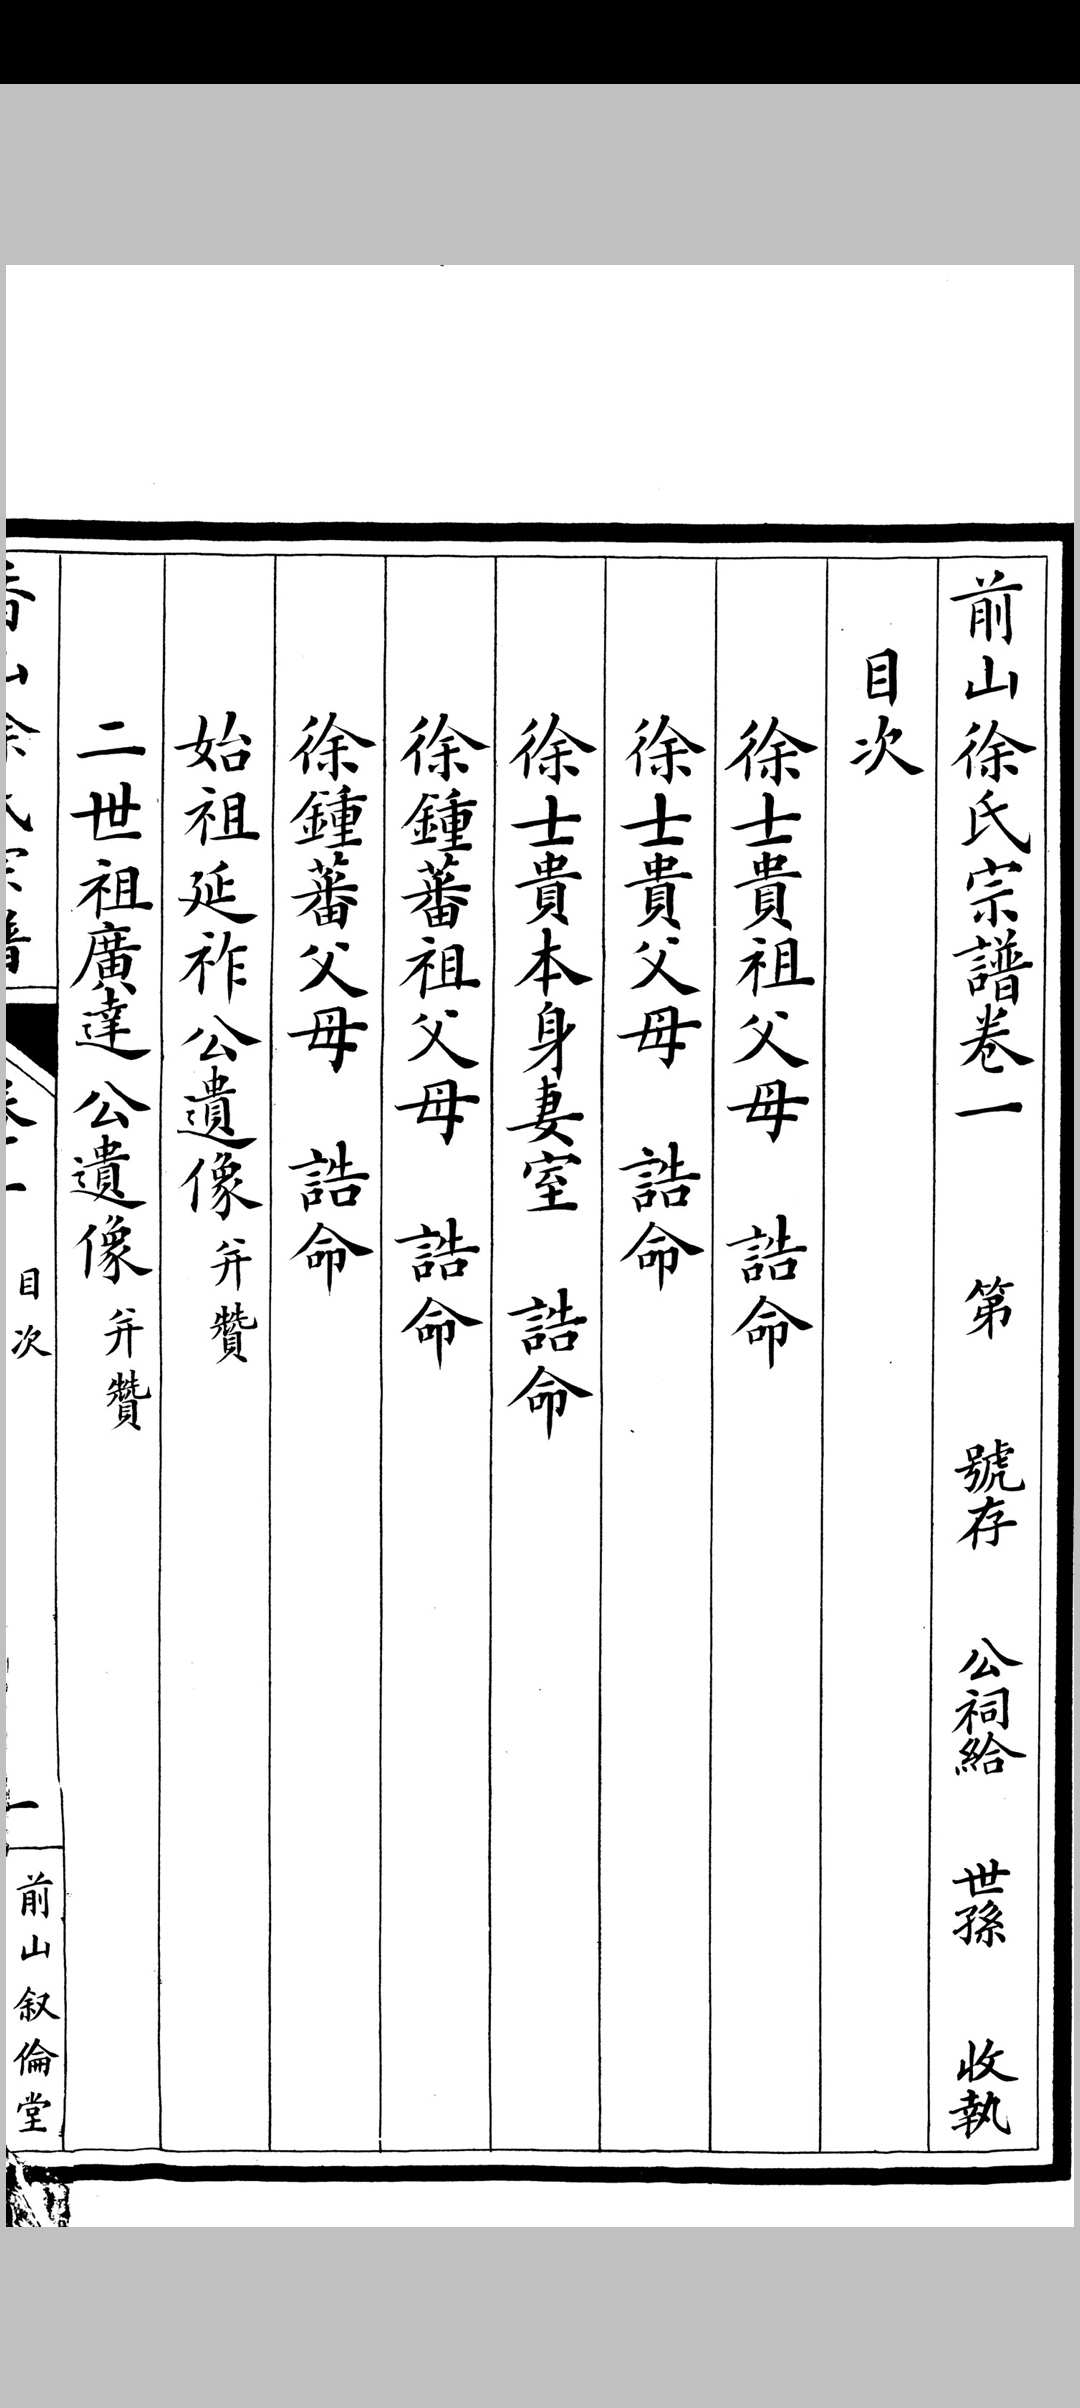 前山徐氏宗譜卷一　第　號存　公祠給　世孫　收執
目次
徐士貴祖父母　誥命
徐士貴父母　誥命
徐士貴本身妻室　誥命
徐鍾蕃祖父母　誥命
徐鍾蕃父母　誥命
始祖延祚公遺像并贊
二世祖廣達公遺像并贊
香山徐氏宗譜　卷一　目次　一　前山叙倫堂